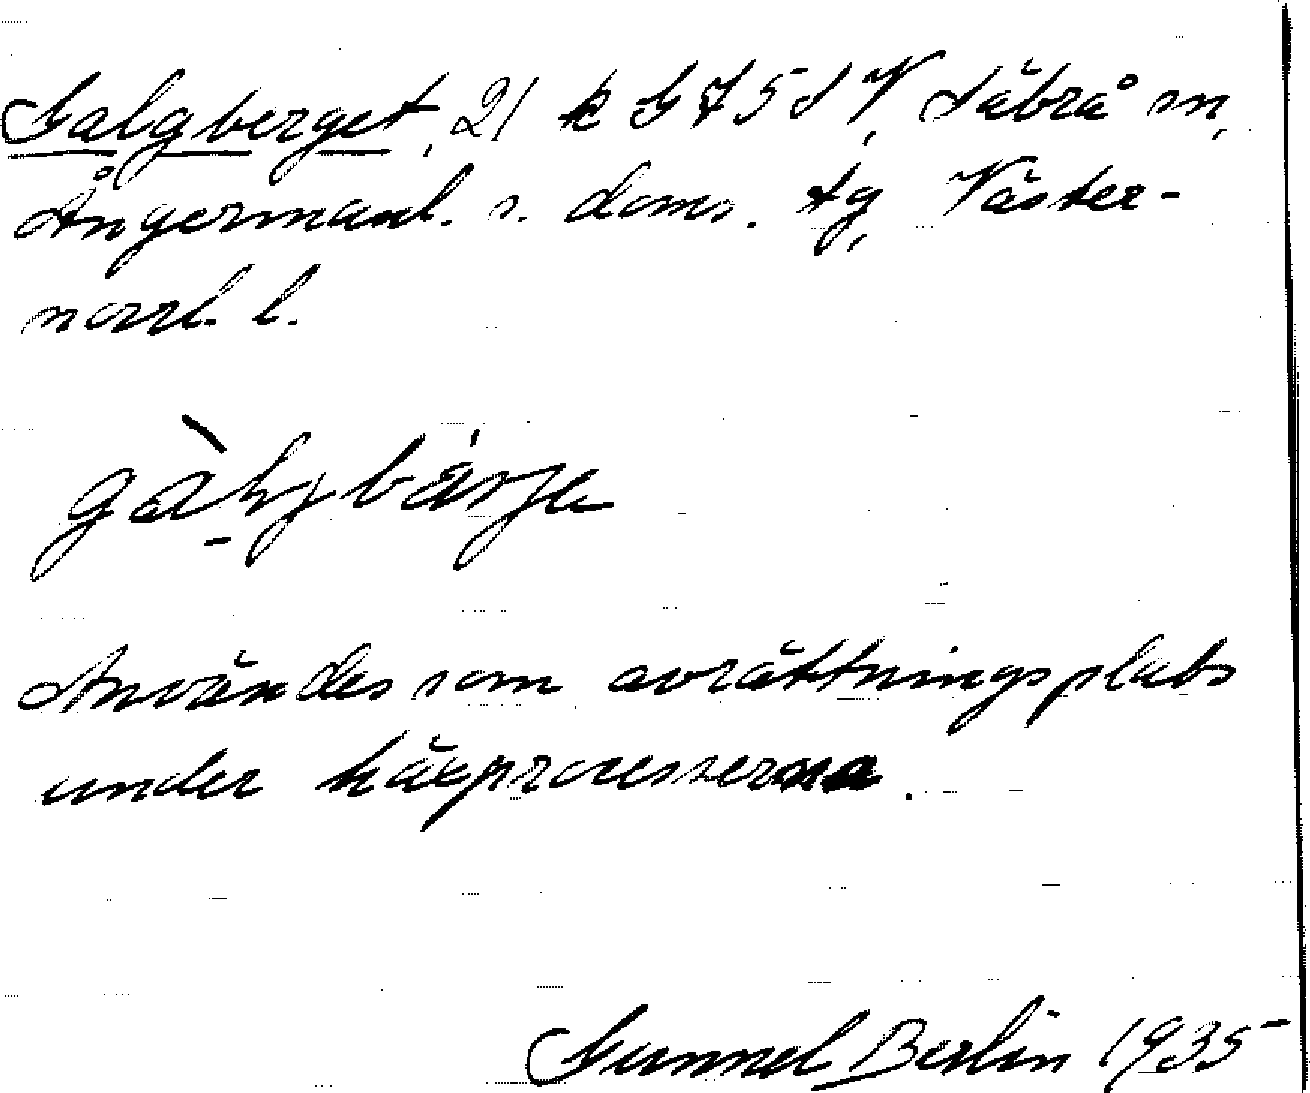 Galgberget, 21 k G 7 5 d V, Säbrå sn,
Ångermanl. s. doms. tg, Väster-
norrl. l.
gàlgbärje
Användes som avrättningsplats
under häxprocesserna.
Gunnel Berlin 1935